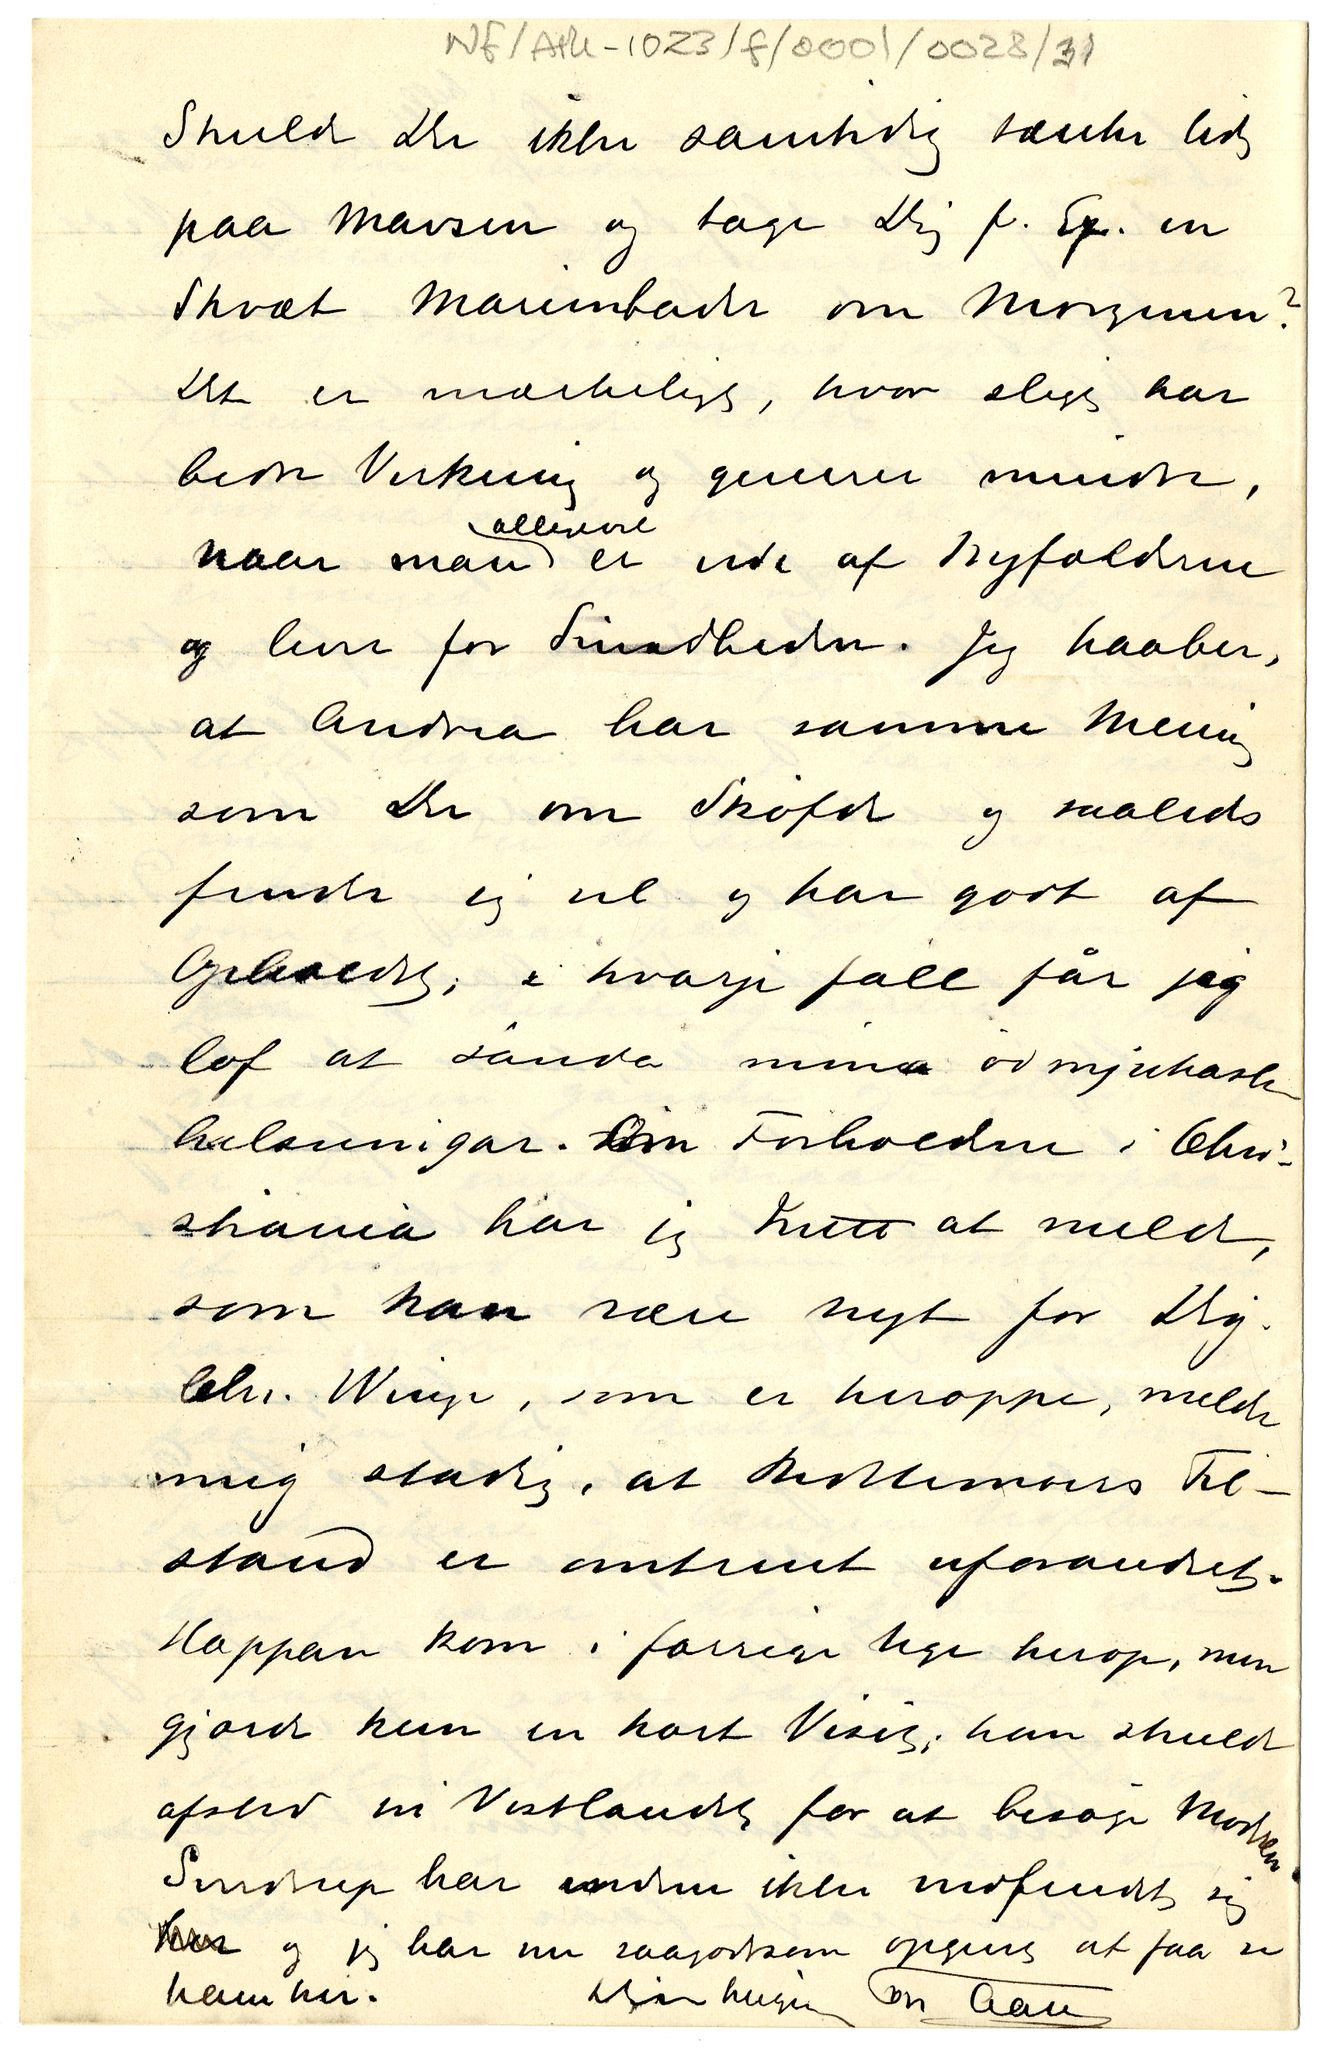 NF/Ark-1023/f/0001/0028/31
Skulde Du ikke samtidig tænke lidt
paa Mavsen og tage Dig f. Ex. en
Skvæt Marienbader om Morgenen?
Det er mærkeligt, hvor sligt har
bedre Virkning og generer mindre,
allevel
naar man er ude af Byfolderne
og lever for Sundheden. Jeg haaber,
at Andrea har samme Mening
som Du om Sköfde og saaledes
finder sig vel og har godt af
Opholdet; i hvarje fall får jag
lof at sända mina ödmjukaste
helsningar. Om Forholdene i Chri-
stiania har jeg Intet at melde,
som kan være nyt for Dig.
Chr. Winge, som er heroppe, melder
mig stadig, at Bedstemors Til-
stand er omtrent uforandret.
Koppen kom i forrige Uge herop, men
gjorde kun en kort Visit; han skulde
afsted til Vestlandet for at besøge Moderen.
Sendrup har endnu ikke indfundet sig
og jeg har nu saagodtsom opgivet at faa se
ham her. Din hengivne